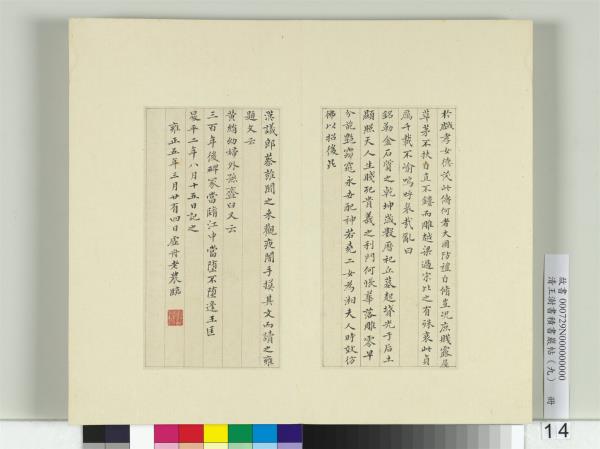 於戲孝女德茂此儔何者大國防禮自脩豈況庶賤露屋
草茅不扶自直不鏤而雕越梁過宗比之有殊哀此貞
厲千載不渝嗚呼哀哉亂曰
銘勒金石質之乾坤歲數曆祀丘墓起墳光于后土
顯照天人生賤死貴義之利門何悵華落雕零早
分葩豔窈窕永世配神若堯二女為湘夫人時效仿
佛以招後昆
漢議郎蔡雍聞之來觀夜闇手摸其文而讀之雍
題文云
黃絹幼婦外孫齏臼又云
三百年後碑冢當墮江中當墮不墮逢王匡
昇平二年八月十五日記之
雍正五年三月廿有四日虛舟老農臨
故書 000729N000000000
清王澍書積書巖帖（九） 冊
14